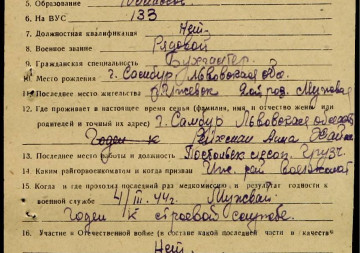 5. Образование
6. На ВУС 133
7. Должностная квалификация Нет
8. Военное звание Рядовой
9. Гражданская специальность Бухгалтер
10. Место рождения г. Самбур Львовская обл.
11. Последнее место жительства г. Ижевск
12. Где проживает в настоящее время семья (фамилия, имя и отчество жены или
родителей и точный их адрес) г. Самбур Львовской области
Годен к Анна
13. Последнее место работы и должность
14. Каким райгорвоенкоматом и когда призван Иж. рай военкомат
15. Когда и где проходил последний раз медкомиссию и результат годности к
военной службе 4/III. 44г.
Годен к строевой службе.
16. Участие в Отечественной войне (в составе какой последней части в качестве
Нет.